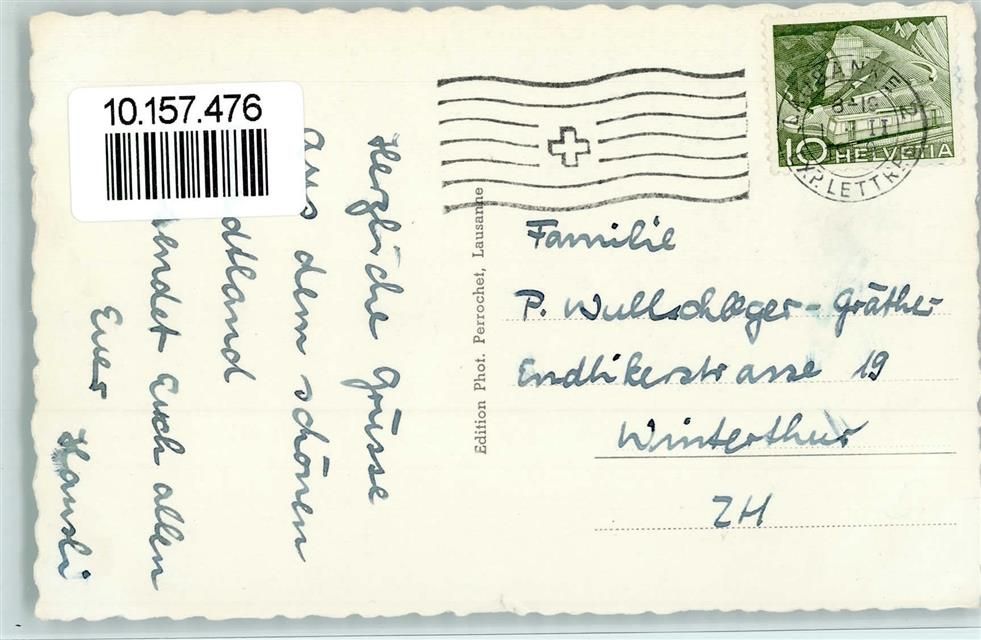 10.157.476
Herzliche Grüsse
aus dem schönen
dtland
endet Euch allen
Euer
Hansli
Edition Phot. Perrochet, Lausanne
LAUSANNE 2
8-19
II
EXP. LETTR.
10 HELVETIA
Familie
P. Wullschleger-Gräther
Endlikerstrasse 19
Winterthur
ZH